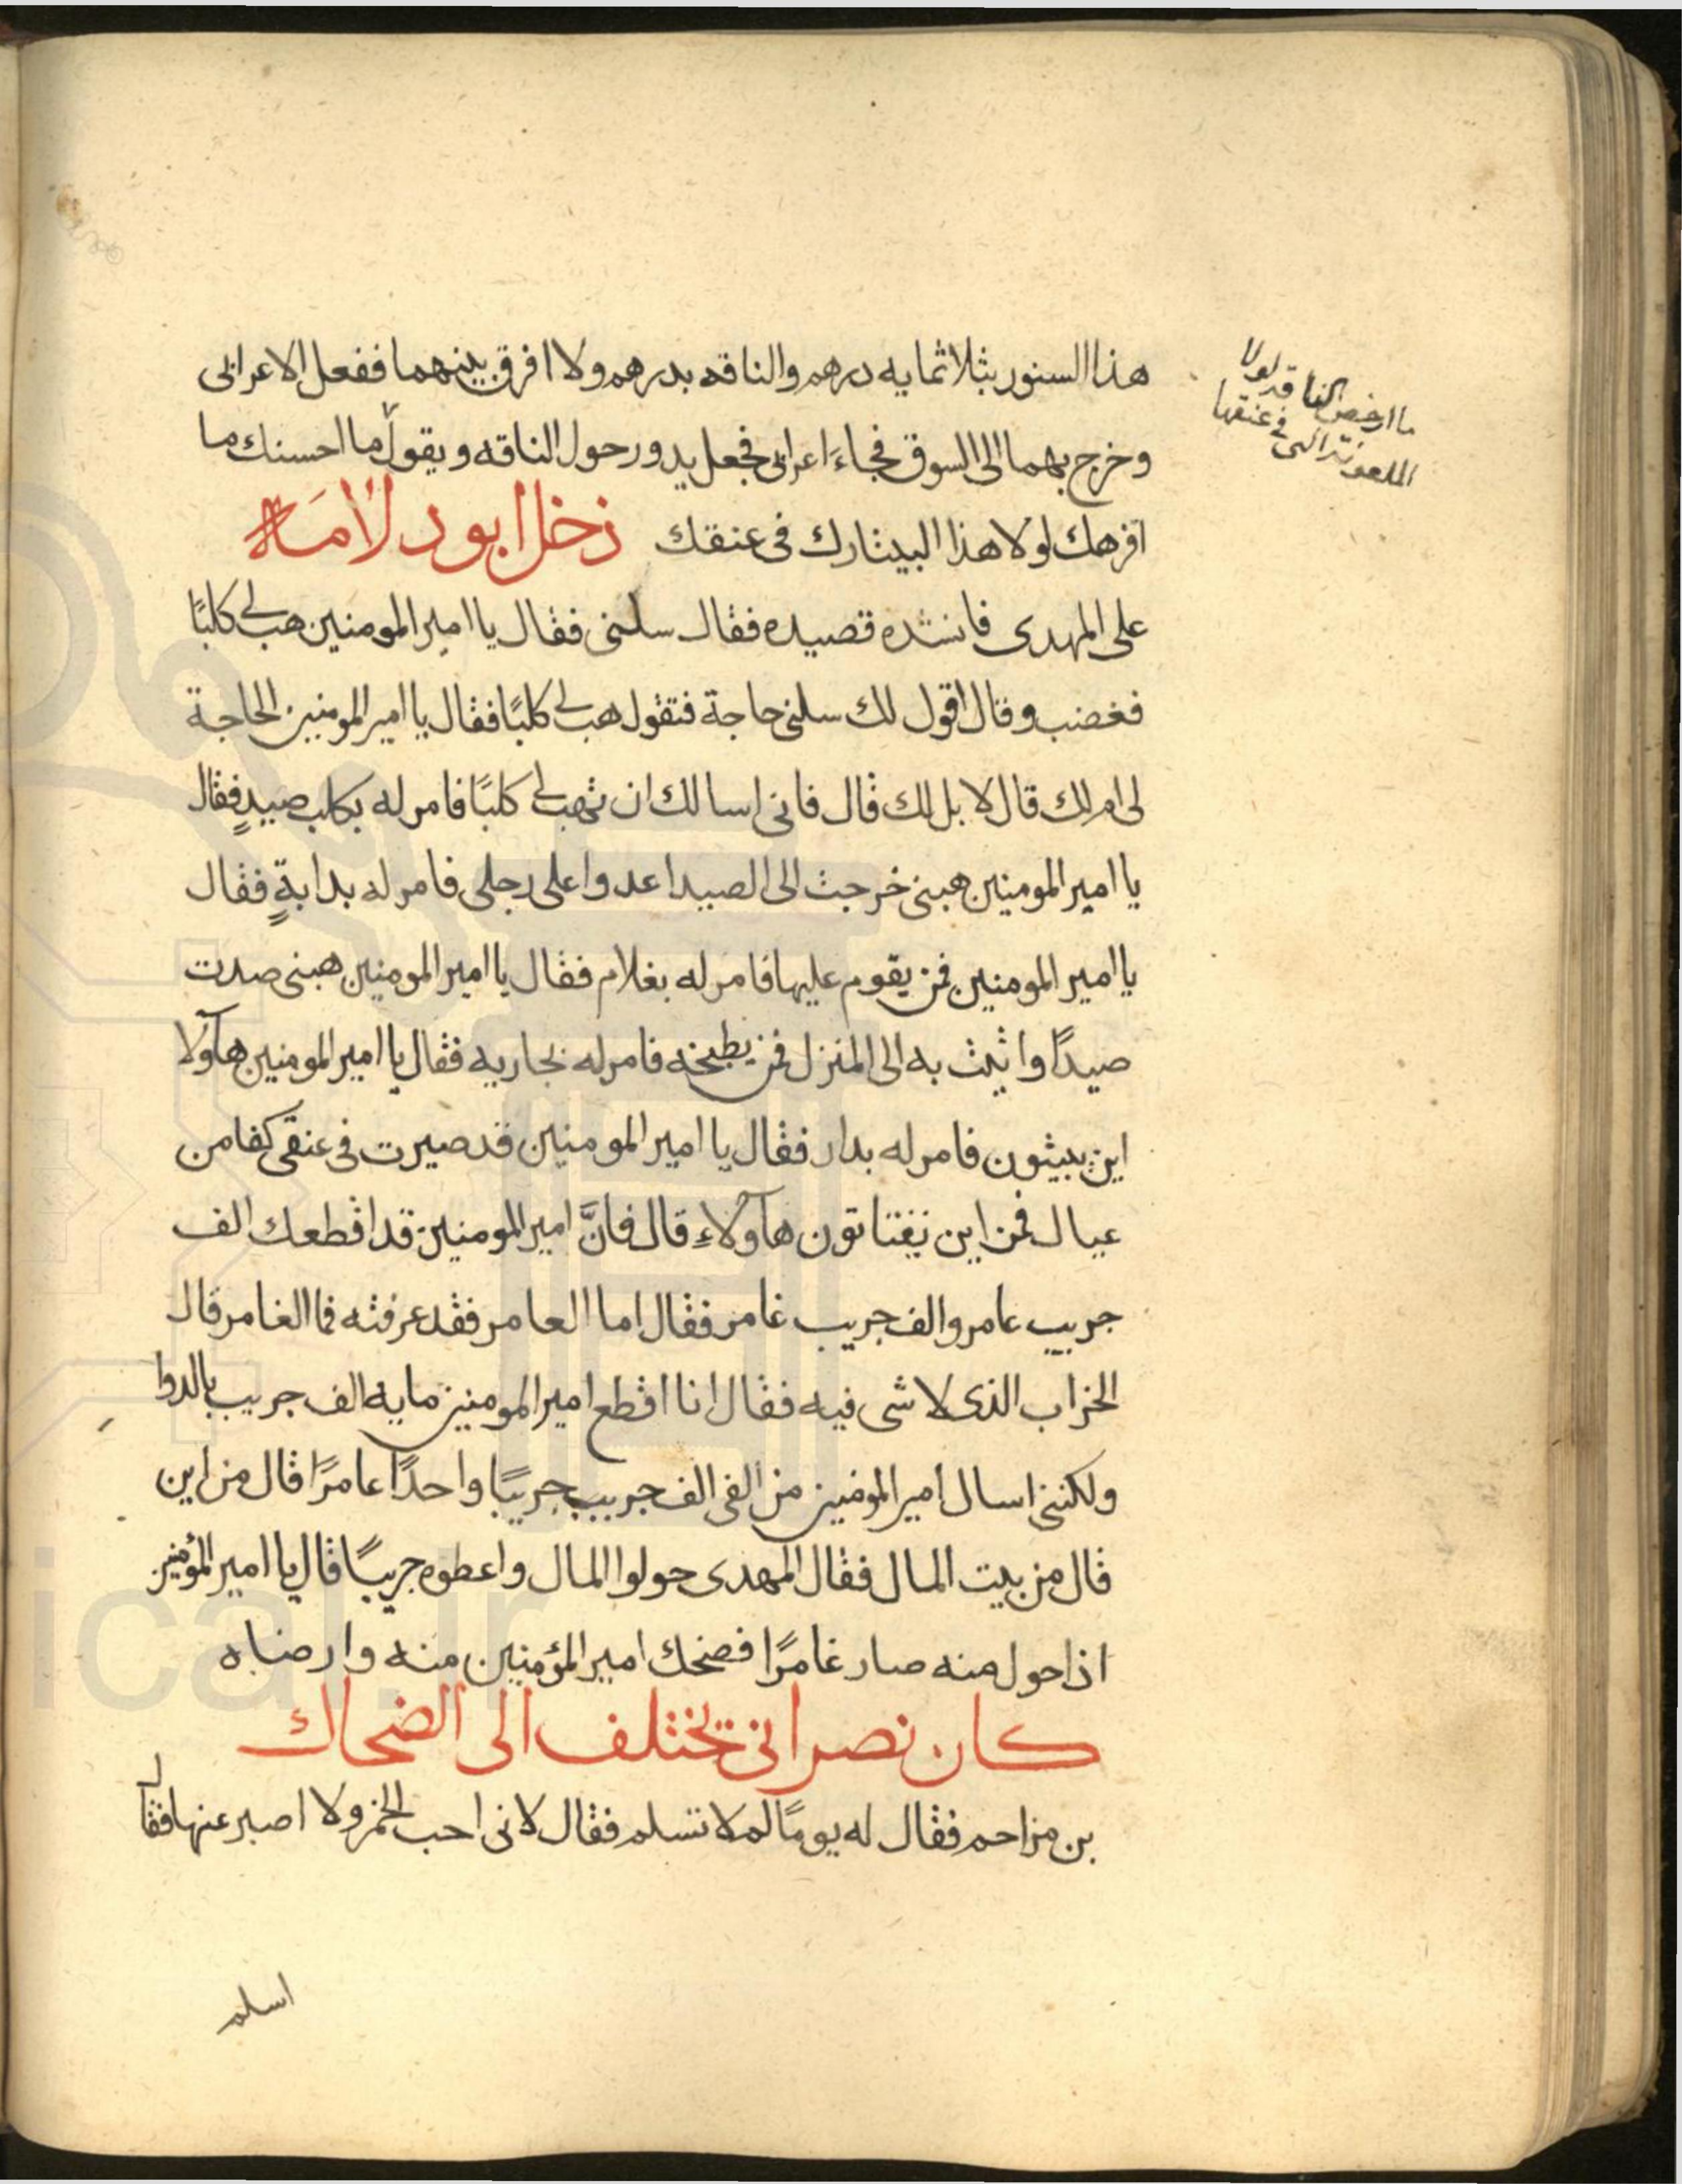 هذا السنور بثلاثمايه درهم والناقه بدرهم ولا افرق بينهما ففعل الاعرابى
وخرج بهما الى السوق فجاءَ اعرابى فجعل يدور حول الناقه ويقول ما احسنك ما
افرهك لولا هذا البيثارك فى عنقك دخل ابو دلامَه
على المهدى فانشده قصيده فقال سلنى فقال يا امير المومنين هب لى كلبًا
فغضب وقال اقول لك سلنى حاجة فتقول هب لى كلبًا فقال يا امير المومنين الحاجة
لى ام لك قال لا بل لك قال فانى اسالك ان تهب لى كلبًا فامر له بكلب صيدٍ فقال
يا امير المومنين هبنى خرجت الى الصيد اعدوا على رجلى فامر له بدابةٍ فقال
يا امير المومنين فمن يقوم عليها فامر له بغلام فقال يا امير المومنين هبنى صدت
صيدًا واتيت به الى المنزل فمن يطبخه فامر له بجاريه فقال يا امير المومنين هآولا
اين يبيتون فامر له بدار فقال يا امير المومنين قد صيرت فى عنقى كفا من
عيال فمن اين يقتاتون هآولاءِ قال فانَّ امير المومنين قد اقطعك الف
جريب عامر والف جريب غامر فقال اما العامر فقد عرفته فما الغامر قال
الخراب الذى لا شى فيه فقال انا اقطع امير المومنين مايه الف جريب بالدوا
ولكننى اسال امير المومنين من الفى الف جريب جريبًا واحدًا عامرًا قال من اين
قال من بيت المال فقال المهدى حولوا المال واعطوه جريبًا قال يا امير المؤمنين
اذا حول منه صار غامرًا فضحك امير المؤمنين منه وارضاه
كان نصرانى يختلف الى الضحاك
بن مزاحم فقال له يومًا لم لا تسلم فقال لانى احب الخمر ولا اصبر عنها فقال
اسلم
ما ارخص الناقه لولا
الملعونة التى فى عنقها